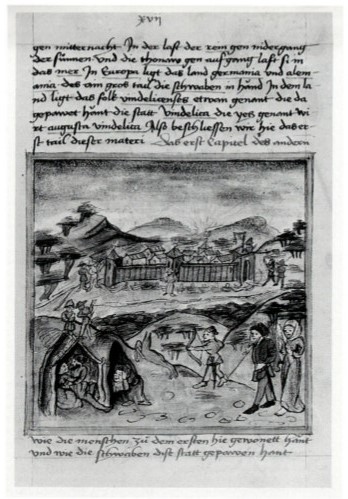 xvii
gen mitternacht In der last der rein gen nidergang
der sunnen und die thonaw gen aufgang last si in
das mer In Europa ligt das land germania und alem
ania des am gros tail die schwaben in hand In dem la
nd ligt das folk vindelicenses etwan genant die da
gepawet hant die statt Vindelica die yetz genant wi
rt augusta vindelica Also beschliessen wir hie das er
st tail dieser materi Das erst Capitel des andern
wie die menschen zu dem ersten hie gewonett hant
und wie die schwaben dise statt gepawen hant